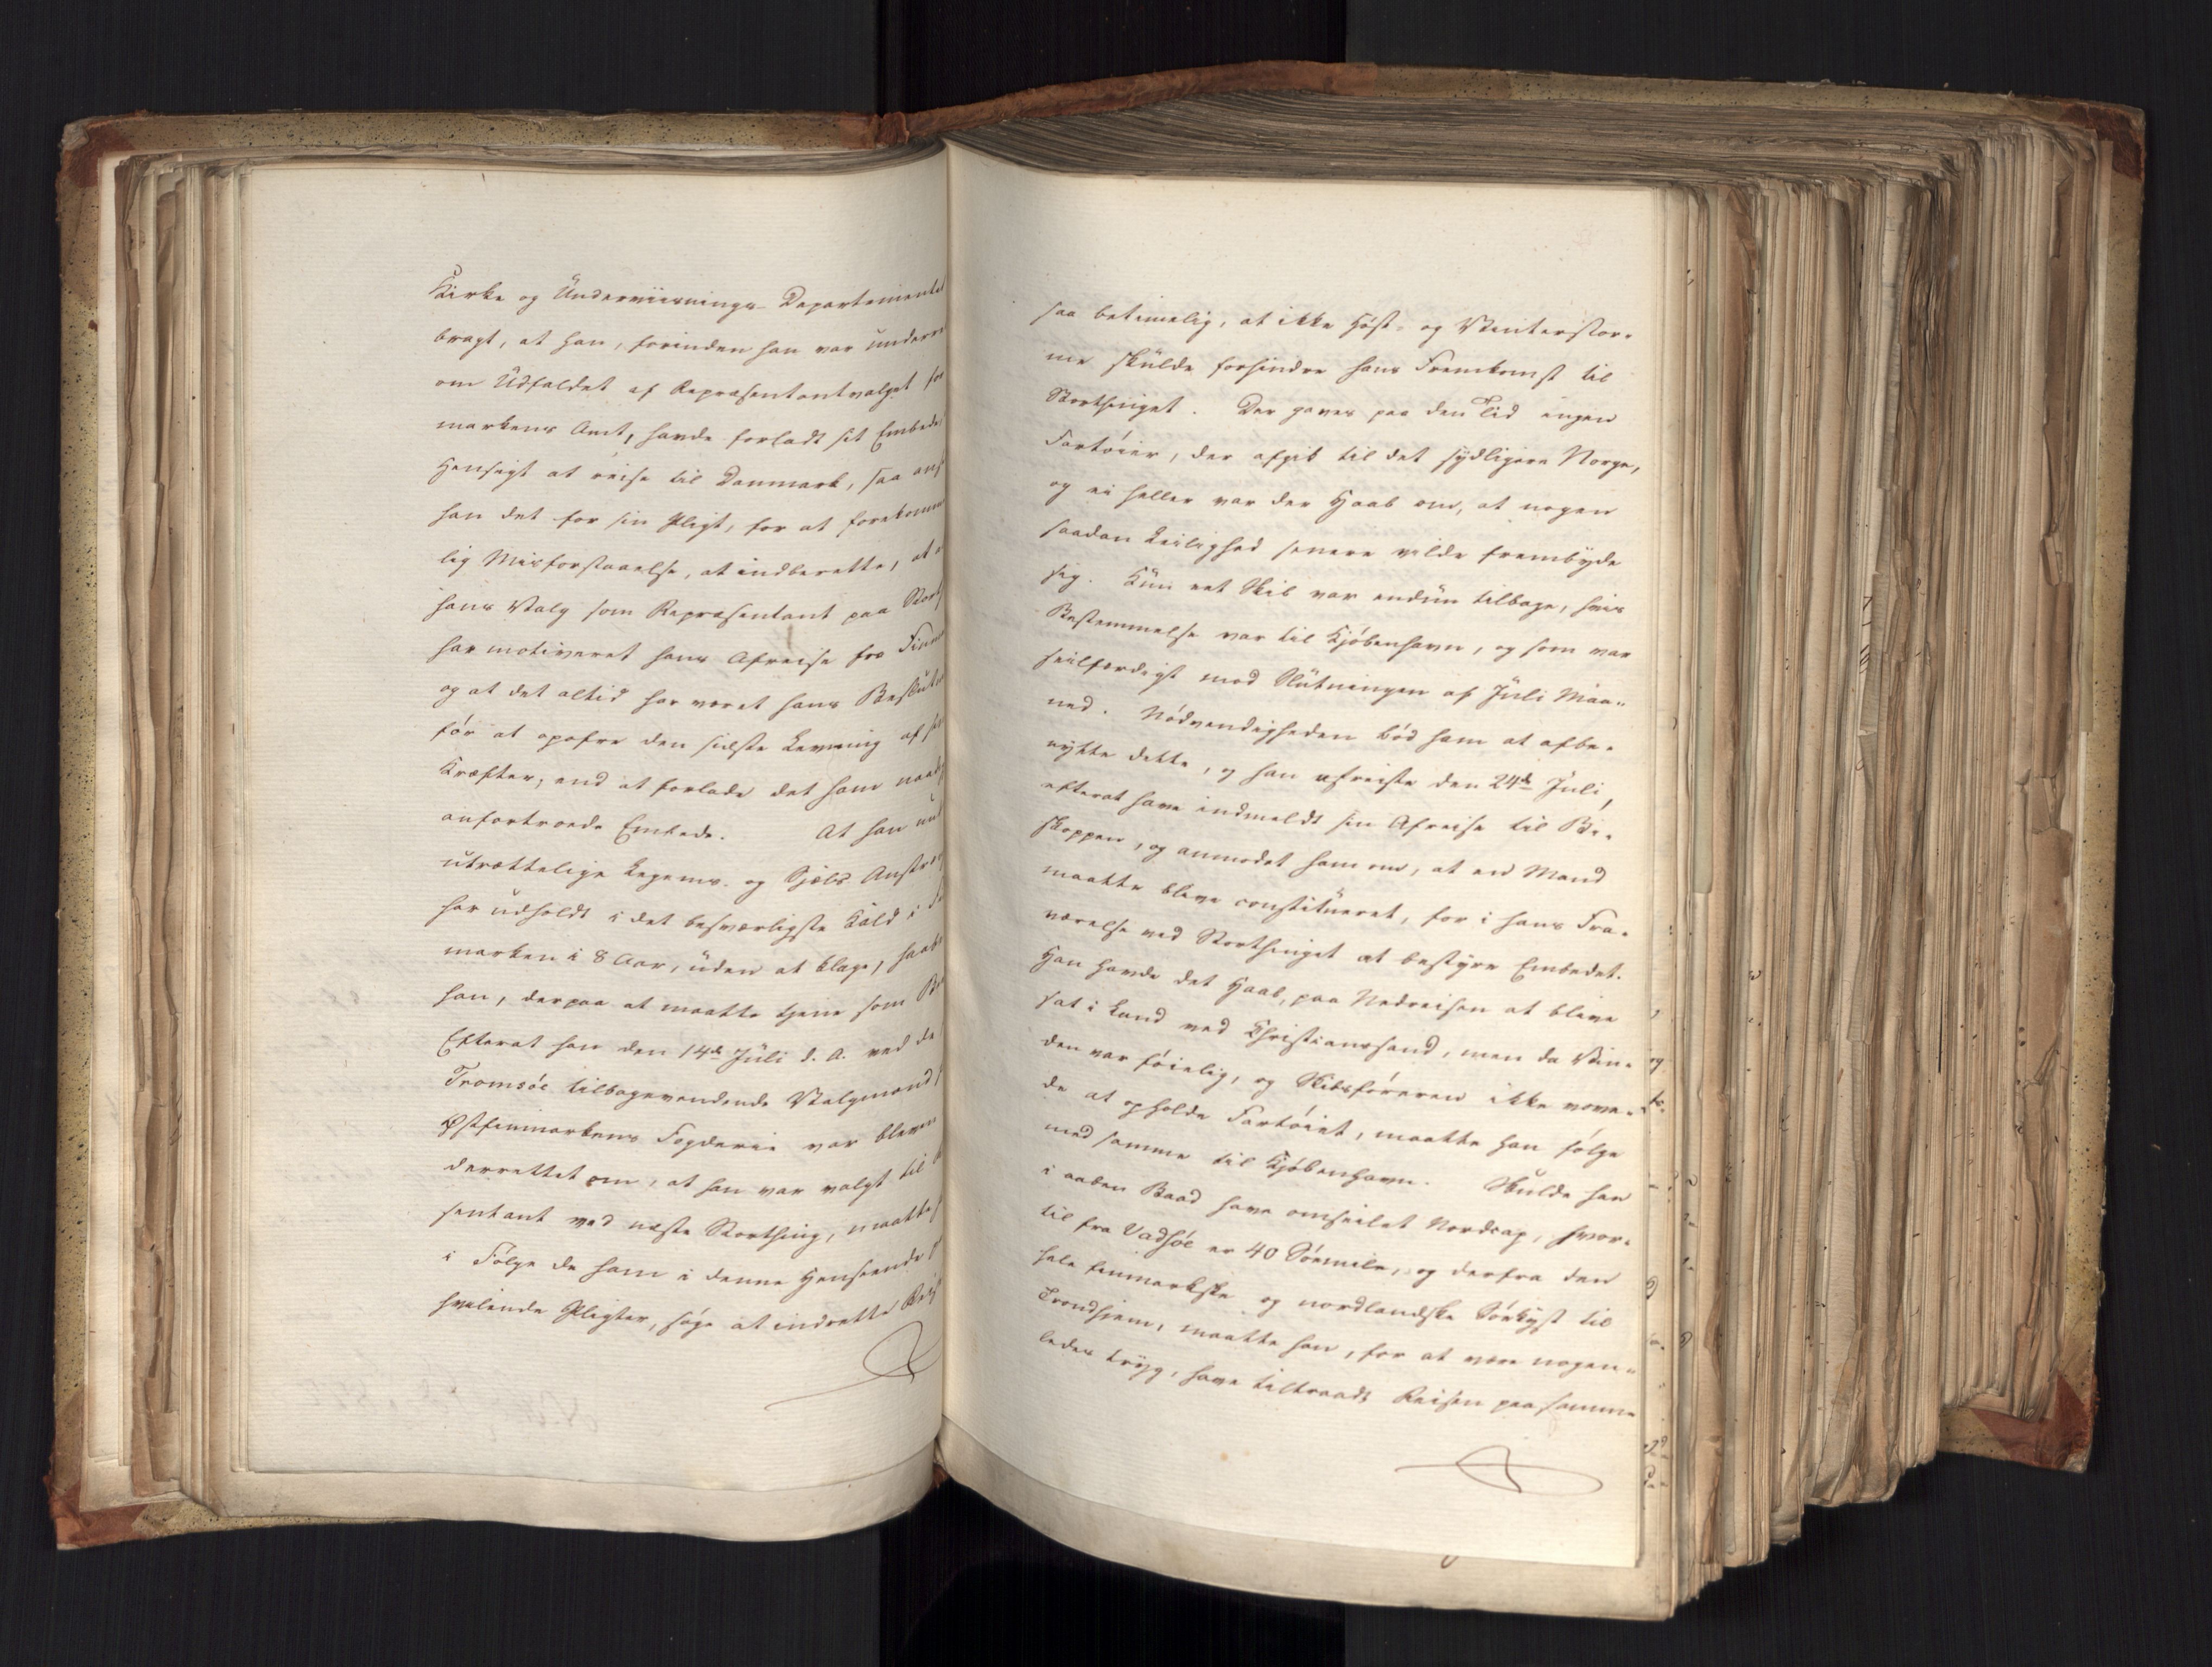 Kirke og Underviisnings-Departementet
bragt, at han, forinden han var underre
om Udfaldet af Repræsentantvalget for
markens Amt, havde forladt sit Embede
Hensigt at reise til Danmark, saa ans
han det for sin Pligt, for at forekomme
lig Misforstaaelse, at indberette, at
hans Valg som Repræsentant paa Storth
har motiveret hans Afreise fra Finm
og at det altid har været hans Beslutn
før at opofre den sidste Levning af si
Kræfter, end at forlade det ham naad
anfortroede Embede. At han
utrættelige Legems- og Sjæls Anstr
har udholdt i det besværligste Kald i
marken i 8 Aar, uden at klage, haab
han, derpaa at maatte tjene som Be
Efterat han den 14de Juli d. A. ved de
Tromsöe tilbagevendende Valgmænd
Østfinmarkens Fogderie var bleven
derrettet om, at han var valgt til
sentant ved næste Storthing, maatte
i Følge de ham i denne Henseende
hvilende Pligter, søge at indrette Reis
saa betimelig, at ikke Høst- og Vinterstor-
me skulde forhindre hans Fremkomst til
Storthinget. Der gaves paa den Tid ingen
Fartøier, der afgik til det sydligere Norge,
og ei heller var der Haab om, at nogen
saadan Leilighed senere vilde frembyde
sig. Kun eet Skib var endnu tilbage, hvis
Bestemmelse var til Kjøbenhavn, og som var
seilfærdigt mod Slutningen af Juli Maa-
ned. Nødvendigheden bød ham at afbe-
nytte dette, og han afreiste den 24de Juli,
efterat have indmeldt sin Afreise til Bi-
skoppen, og anmodet ham om, at en Mand
maatte blive constitueret, for i hans Fra-
værelse ved Storthinget at bestyre Embedet.
Han havde det Haab, paa Nedreisen at blive
sat i Land ved Christianssand, men da Vin-
den var føielig, og Skibsføreren ikke vove-
de at opholde Fartøiet, maatte han følge
med samme til Kjøbenhavn. Skulde han
i aaben Baad have omseilet Nordcap, hvor-
til fra Vadsöe er 40 Søemile, og derfra den
hele finmarkske og nordlandske Søekyst til
Trondhjem, maatte han, for at være nogen-
ledes tryg, have tiltraadt Reisen paa samme